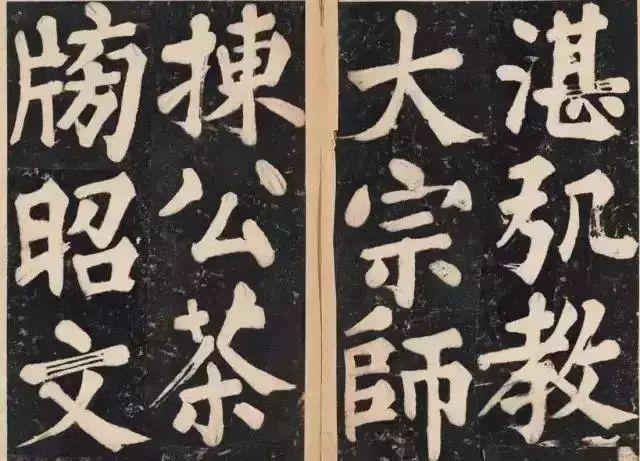 湛弘教
大宗師
揀公茶
牓昭文